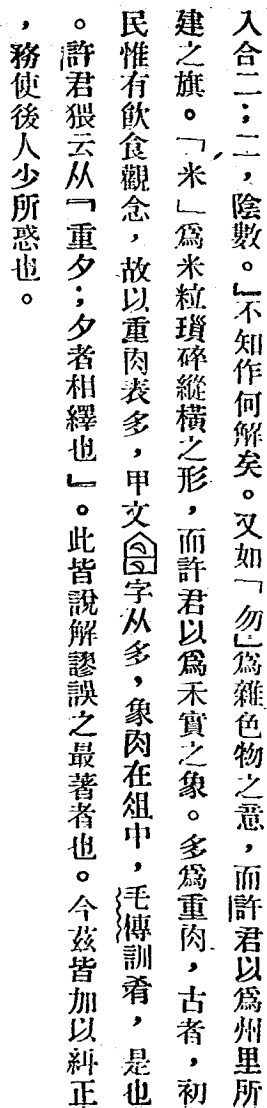 入合二；二，陰數。」不知作何解矣。又如「勿」爲雜色物之意，而許君以爲州里所
建之旗。「米」爲米粒瑣碎縱橫之形，而許君以爲禾實之象。多爲重肉，古者，初
民惟有飮食觀念，故以重肉表多，甲文字从多，象肉在俎中，毛傳訓肴，是也
。許君猥云从『重夕；夕者相繹也』。此皆說解謬誤之最著者也。今茲皆加以糾正
，務使後人少所惑也。